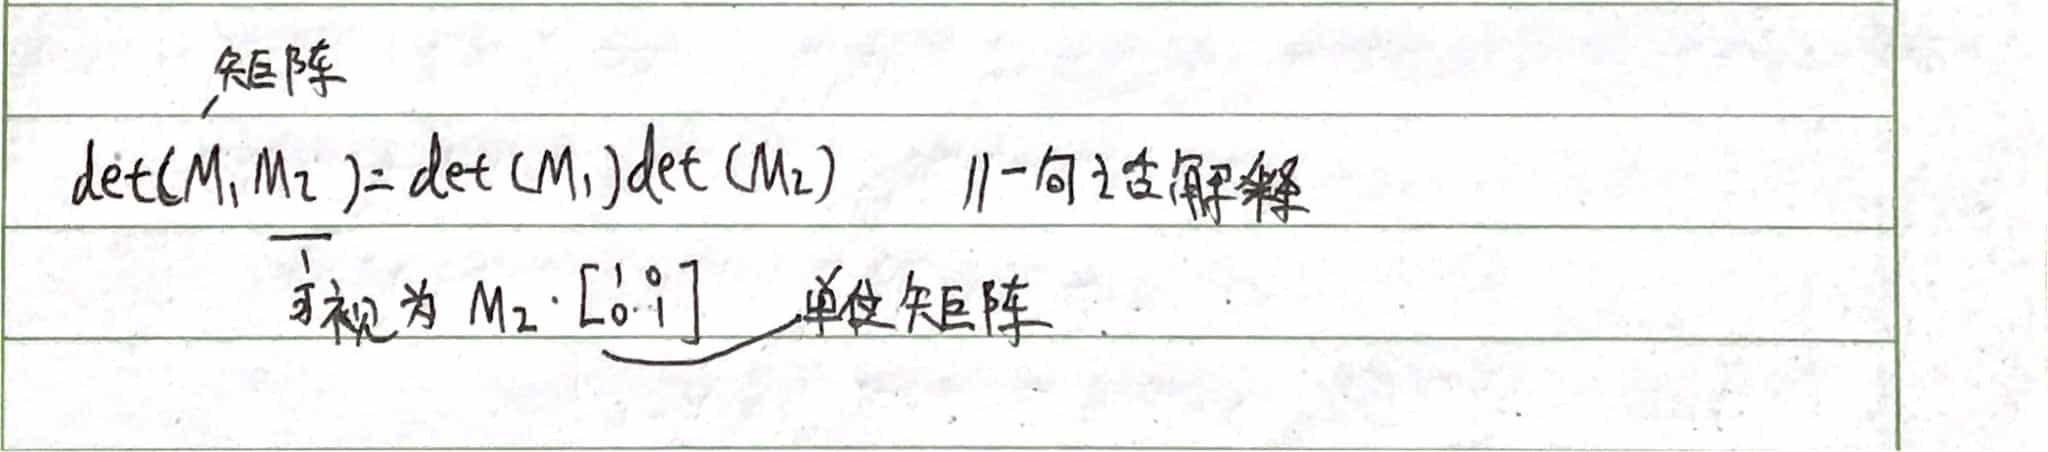 矩阵
det(M₁M₂)=det(M₁)det(M₂) //一句话解释
可视为 M₂·[1 0
0 1] 单位矩阵